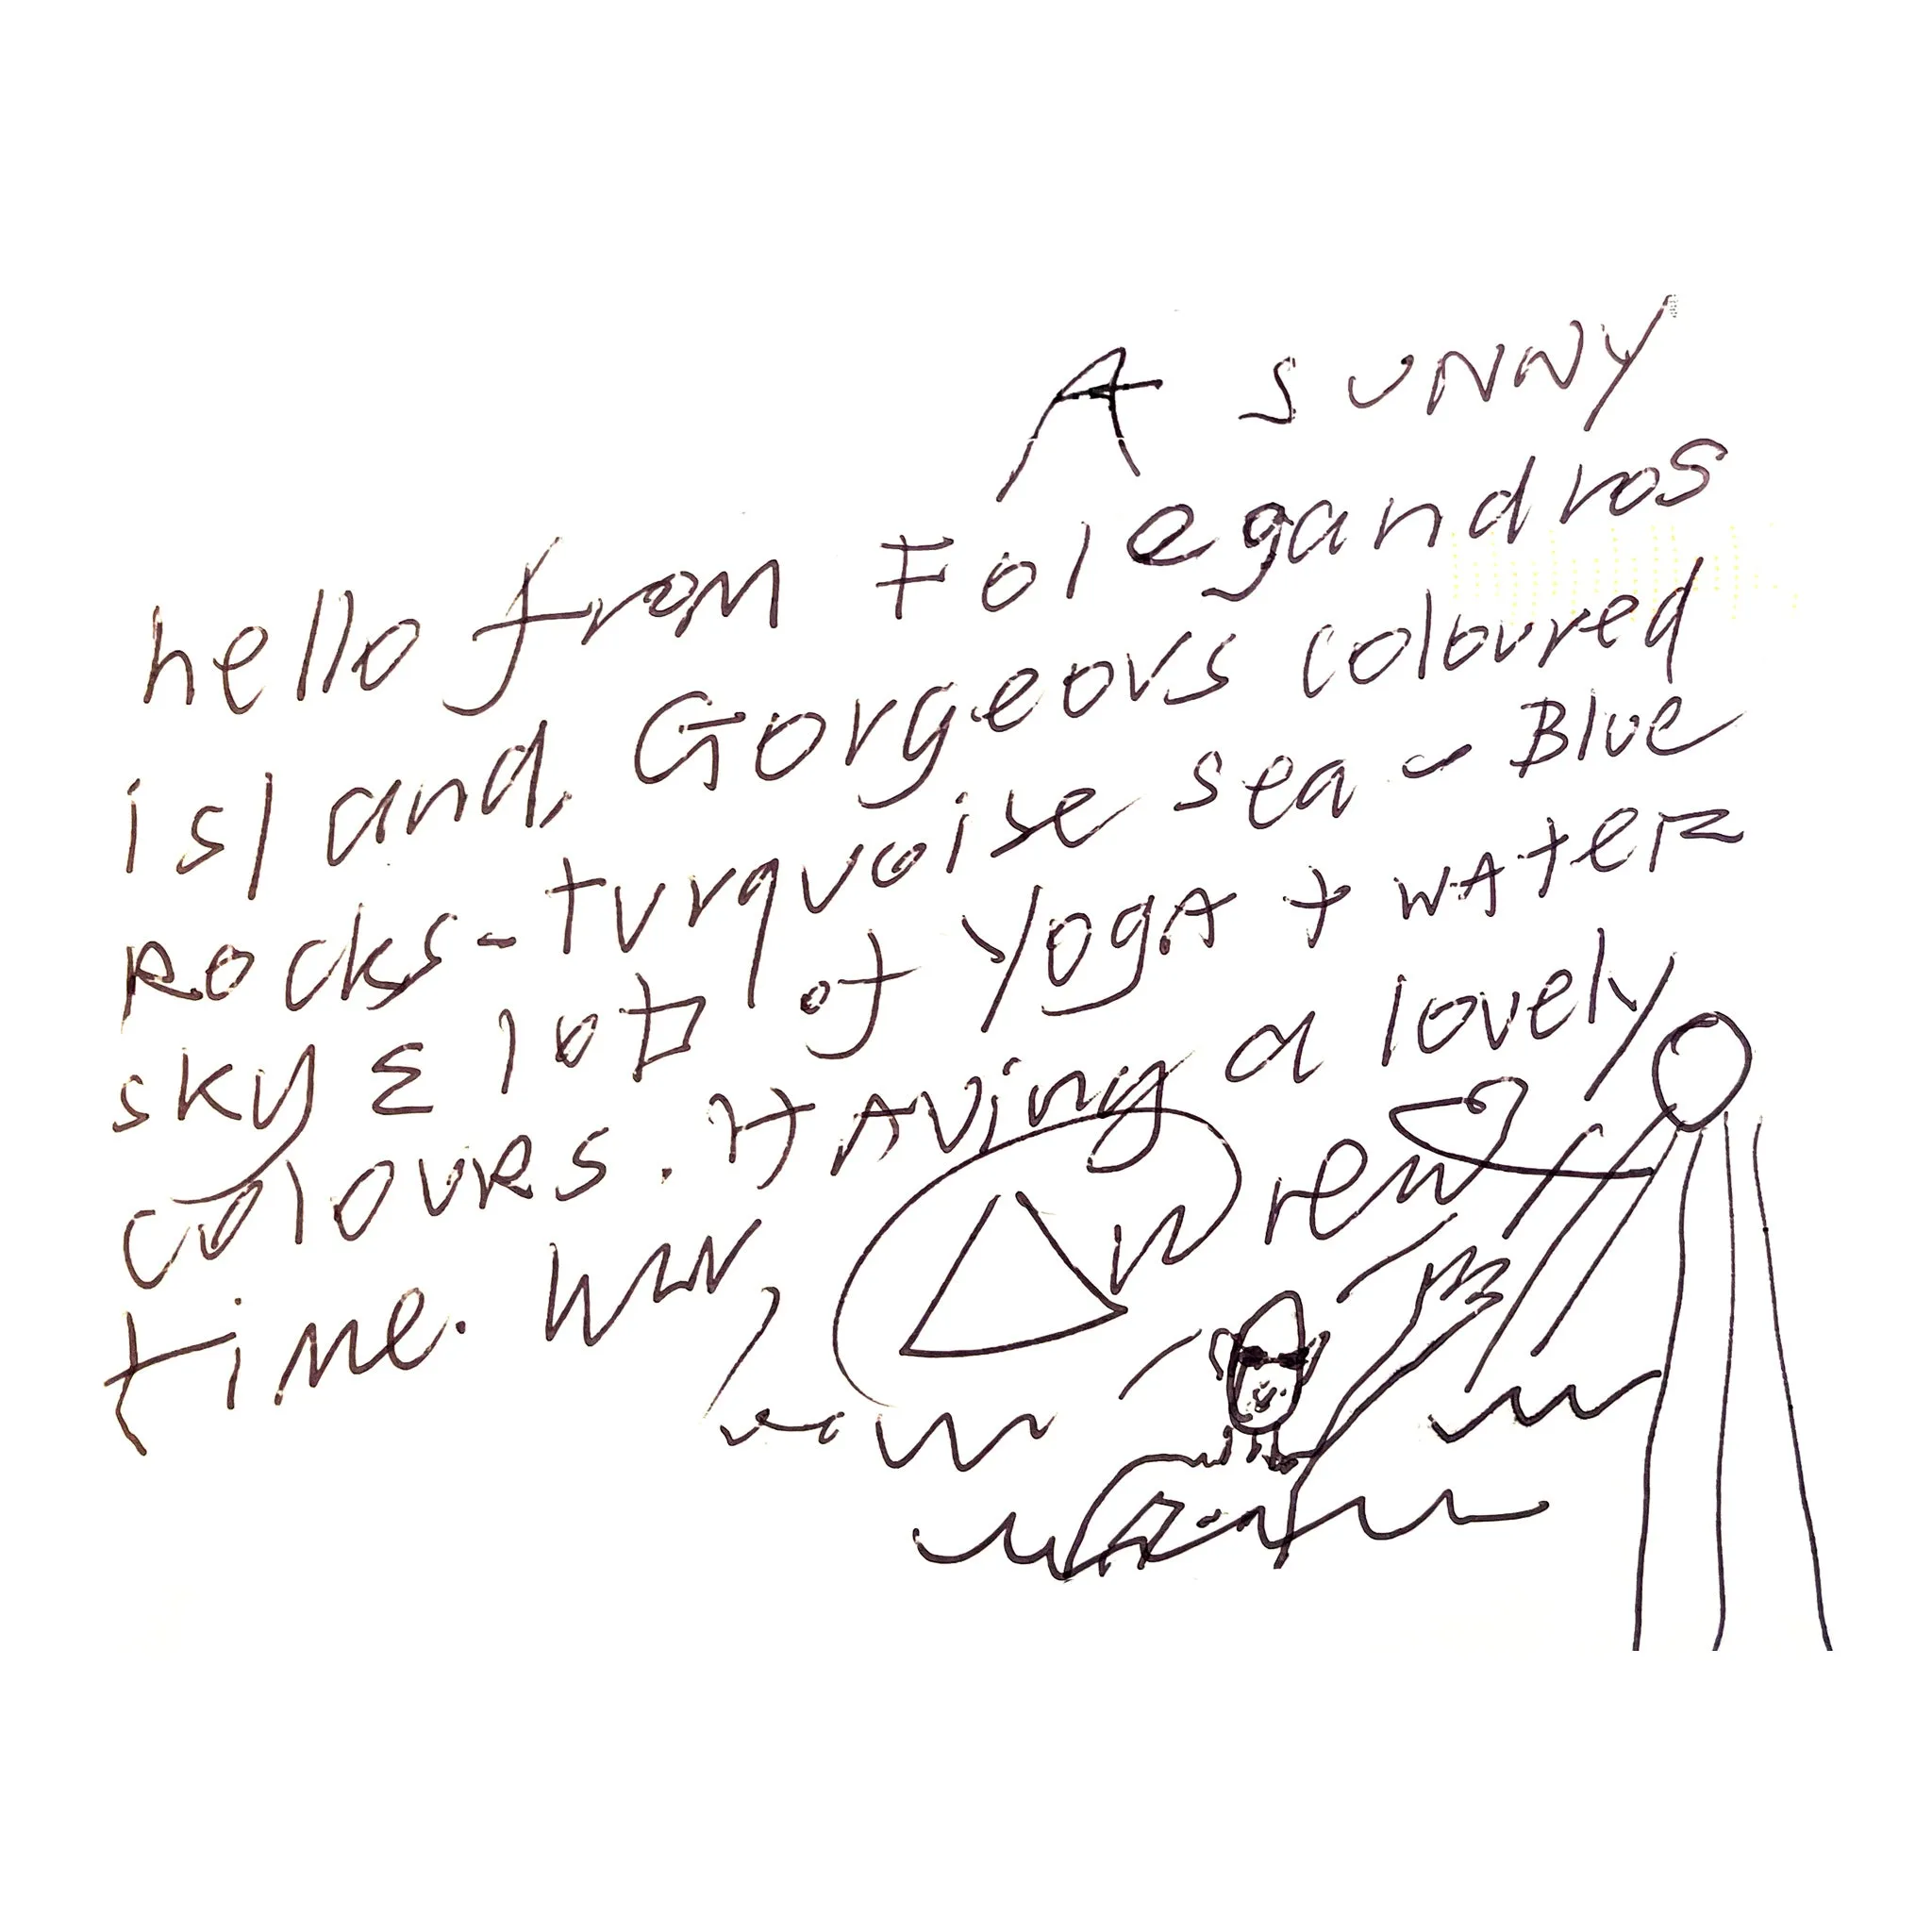 A SUNNY
hello from Folegandros
island. Gorgeous coloured
Rocks - turquoise sea - Blue
sky & lots of yoga + water
colours. Having a lovely
time.